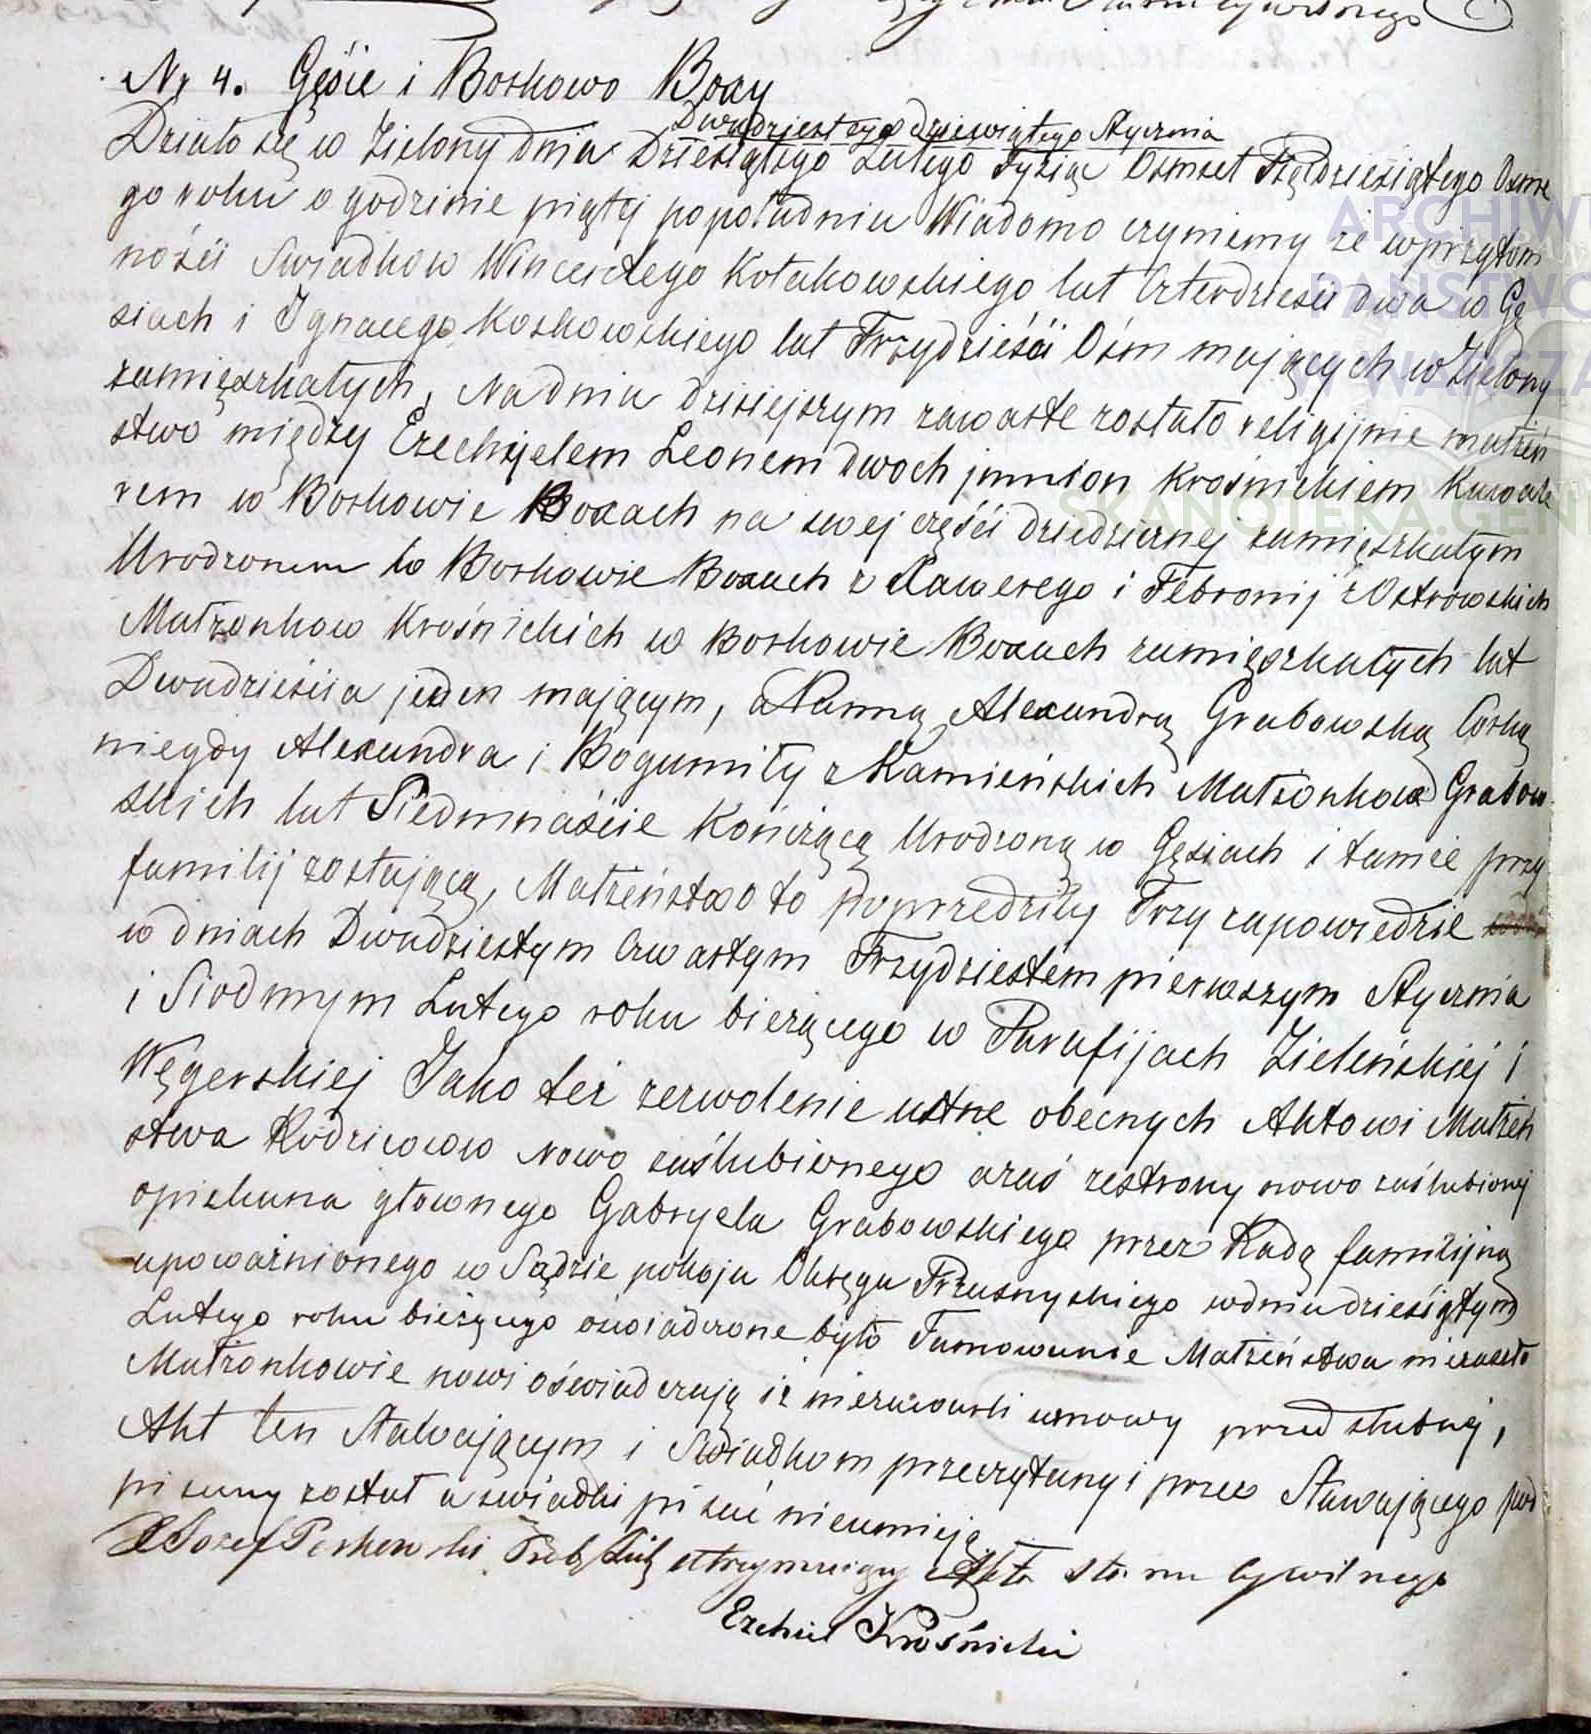 Nr 4. Gęsie i Borkowo Boxy
Dwudziestego dziewiątego Stycznia
Działo się w Zielony dnia Dziesiątego Lutego Tysiąc Osmset Pięćdziesiątego Osme
go roku o godzinie piątej popołudniu Wiadomo czyniemy że wprzytom
ności Swiadkow Wincentego Kołakowskiego lat Czterdzieści dwa w Gę
siach i Ignacego Koskowskiego lat Trzydzieści Ośm mających w Zielony
zamięszkałych, Na dniu dzisiejszym zawarte zostało religijnie małżeń
stwo między Ezechyelem Leonem dwoch jmnion Krośnickiem Kawale
rem w Borkowie Boxach na swej części dziedzicznej zamięszkałym
Urodzonem w Borkowie Boxach z Xawerego i Febronij z Ostrowskich
Małżonkow Krośnickich w Borkowie Boxach zamięszkałych lat
Dwadzieścia jeden mającym, a Panną Alexandrą Grabowską Corką
niegdy Alexandra i Bogumiły z Kamieńskich Małżonkow Grabow
skich lat Siedmnaście Kończącą Urodzoną w Gęsiach i tamże przy
familij zostającą, Małżeństwo to poprzedziły Trzy zapowiedzie
w dniach Dwudziestym Czwartym Trzydziestem pierwszym Stycznia
i Siodmym Lutego roku bieżącego w Parafijach Zieleńskiej i
Węgerskiej Jako też zezwolenie ustne obecnych Aktowi Małżeń
stwa Rodzicow Nowo zaślubionego oraś ze strony nowo zaślubionej
opiekuna głownego Gabryela Grabowskiego przez Radą familijną
upoważnionego w Sądzie pokoju Okręgu Przasnyskiego w dniu dziesiątym
Lutego roku bieżącego oświadczone było Tamowanie Małżeństwa niezaszło
Małżonkowie nowi oświadczają iż niezawarli umowy przedślubnej,
Akt ten Stawającym i Swiadkom przeczytany i przez Stawającego pod
pisany został a swiadki pisać nieumieją
X Jozef Perkowski Prob. Ziel. utrzymujący Akta Stanu Cywilnego
Ezechiel Krośnicki
ARCHIW
PAŃSTWO
W WARSZA
SKANOTEKA.GEN